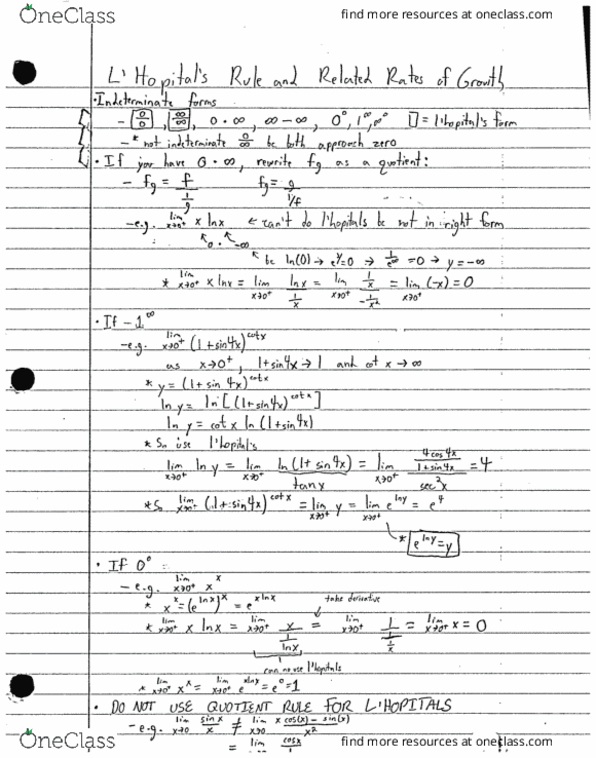 OneClass find more resources at oneclass.com
L'Hopital's Rule and Related Rates of Growth
• Indeterminate forms
- [0/0], [∞/∞], 0·∞, ∞-∞, 0⁰, 1^∞, ∞⁰ [] = l'hopital's form
- * not indeterminate 0/∞ bc both approach zero
• If you have 0·∞, rewrite fg as a quotient:
- fg = f/(1/g) fg = g/(1/f)
- e.g. lim x→0⁺ x ln x ← can't do l'hopitals bc not in right form
0 · -∞
bc ln(0) → e^y=0 → 1/e^∞ = 0 → y = -∞
* lim x→0⁺ x ln x = lim x→0⁺ ln x/(1/x) = lim x→0⁺ (1/x)/(-1/x²) = lim x→0⁺ (-x) = 0
• If - 1^∞
- e.g. lim x→0⁺ (1 + sin 4x)^cot x
as x→0⁺, 1 + sin 4x → 1 and cot x → ∞
* y = (1 + sin 4x)^cot x
ln y = ln [(1 + sin 4x)^cot x]
ln y = cot x ln (1 + sin 4x)
* So use l'hopital's
lim x→0⁺ ln y = lim x→0⁺ ln (1 + sin 4x)/tan x = lim x→0⁺ (4 cos 4x/(1 + sin 4x))/sec² x = 4
* So lim x→0⁺ (1 + sin 4x)^cot x = lim x→0⁺ y = lim x→0⁺ e^ln y = e⁴
* e^ln y = y
• If 0⁰
- e.g. lim x→0⁺ x^x
take derivative
* x^x = (e^ln x)^x = e^x ln x
* lim x→0⁺ x ln x = lim x→0⁺ x/(1/ln x) = lim x→0⁺ 1/(1/(1/x)) = lim x→0⁺ x = 0
can now use l'hopitals
* lim x→0⁺ x^x = lim x→0⁺ e^x ln x = e⁰ = 1
• DO NOT USE QUOTIENT RULE FOR L'HOPITALS
- e.g. lim x→0 sin x/x ≠ lim x→0 (x cos(x) - sin(x))/x²
= lim cos x/1
OneClass find more resources at oneclass.com